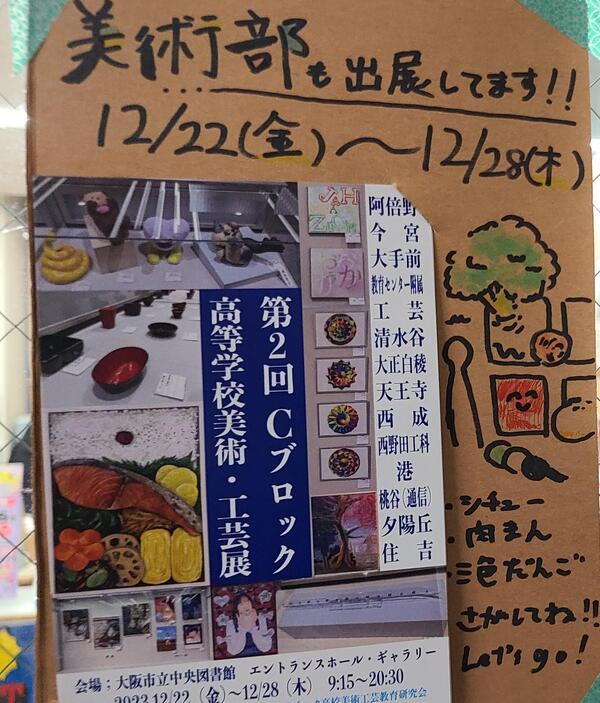 美術部も出展してます!!
12/22(金)〜12/28(木)
阿倍野
今宮
大手前
教育センター附属
工芸
清水谷
大正白稜
天王寺
西成
西野田工科
港
桃谷(通信)
夕陽丘
住吉
第2回Cブロック
高等学校美術・工芸展
・シチュー
・肉まん
・三色だんご
さがしてね!!
Let's go!
会場;大阪市立中央図書館 エントランスホール・ギャラリー
2023 12/22(金)〜12/28(木) 9:15〜20:30
高校美術工芸教育研究会